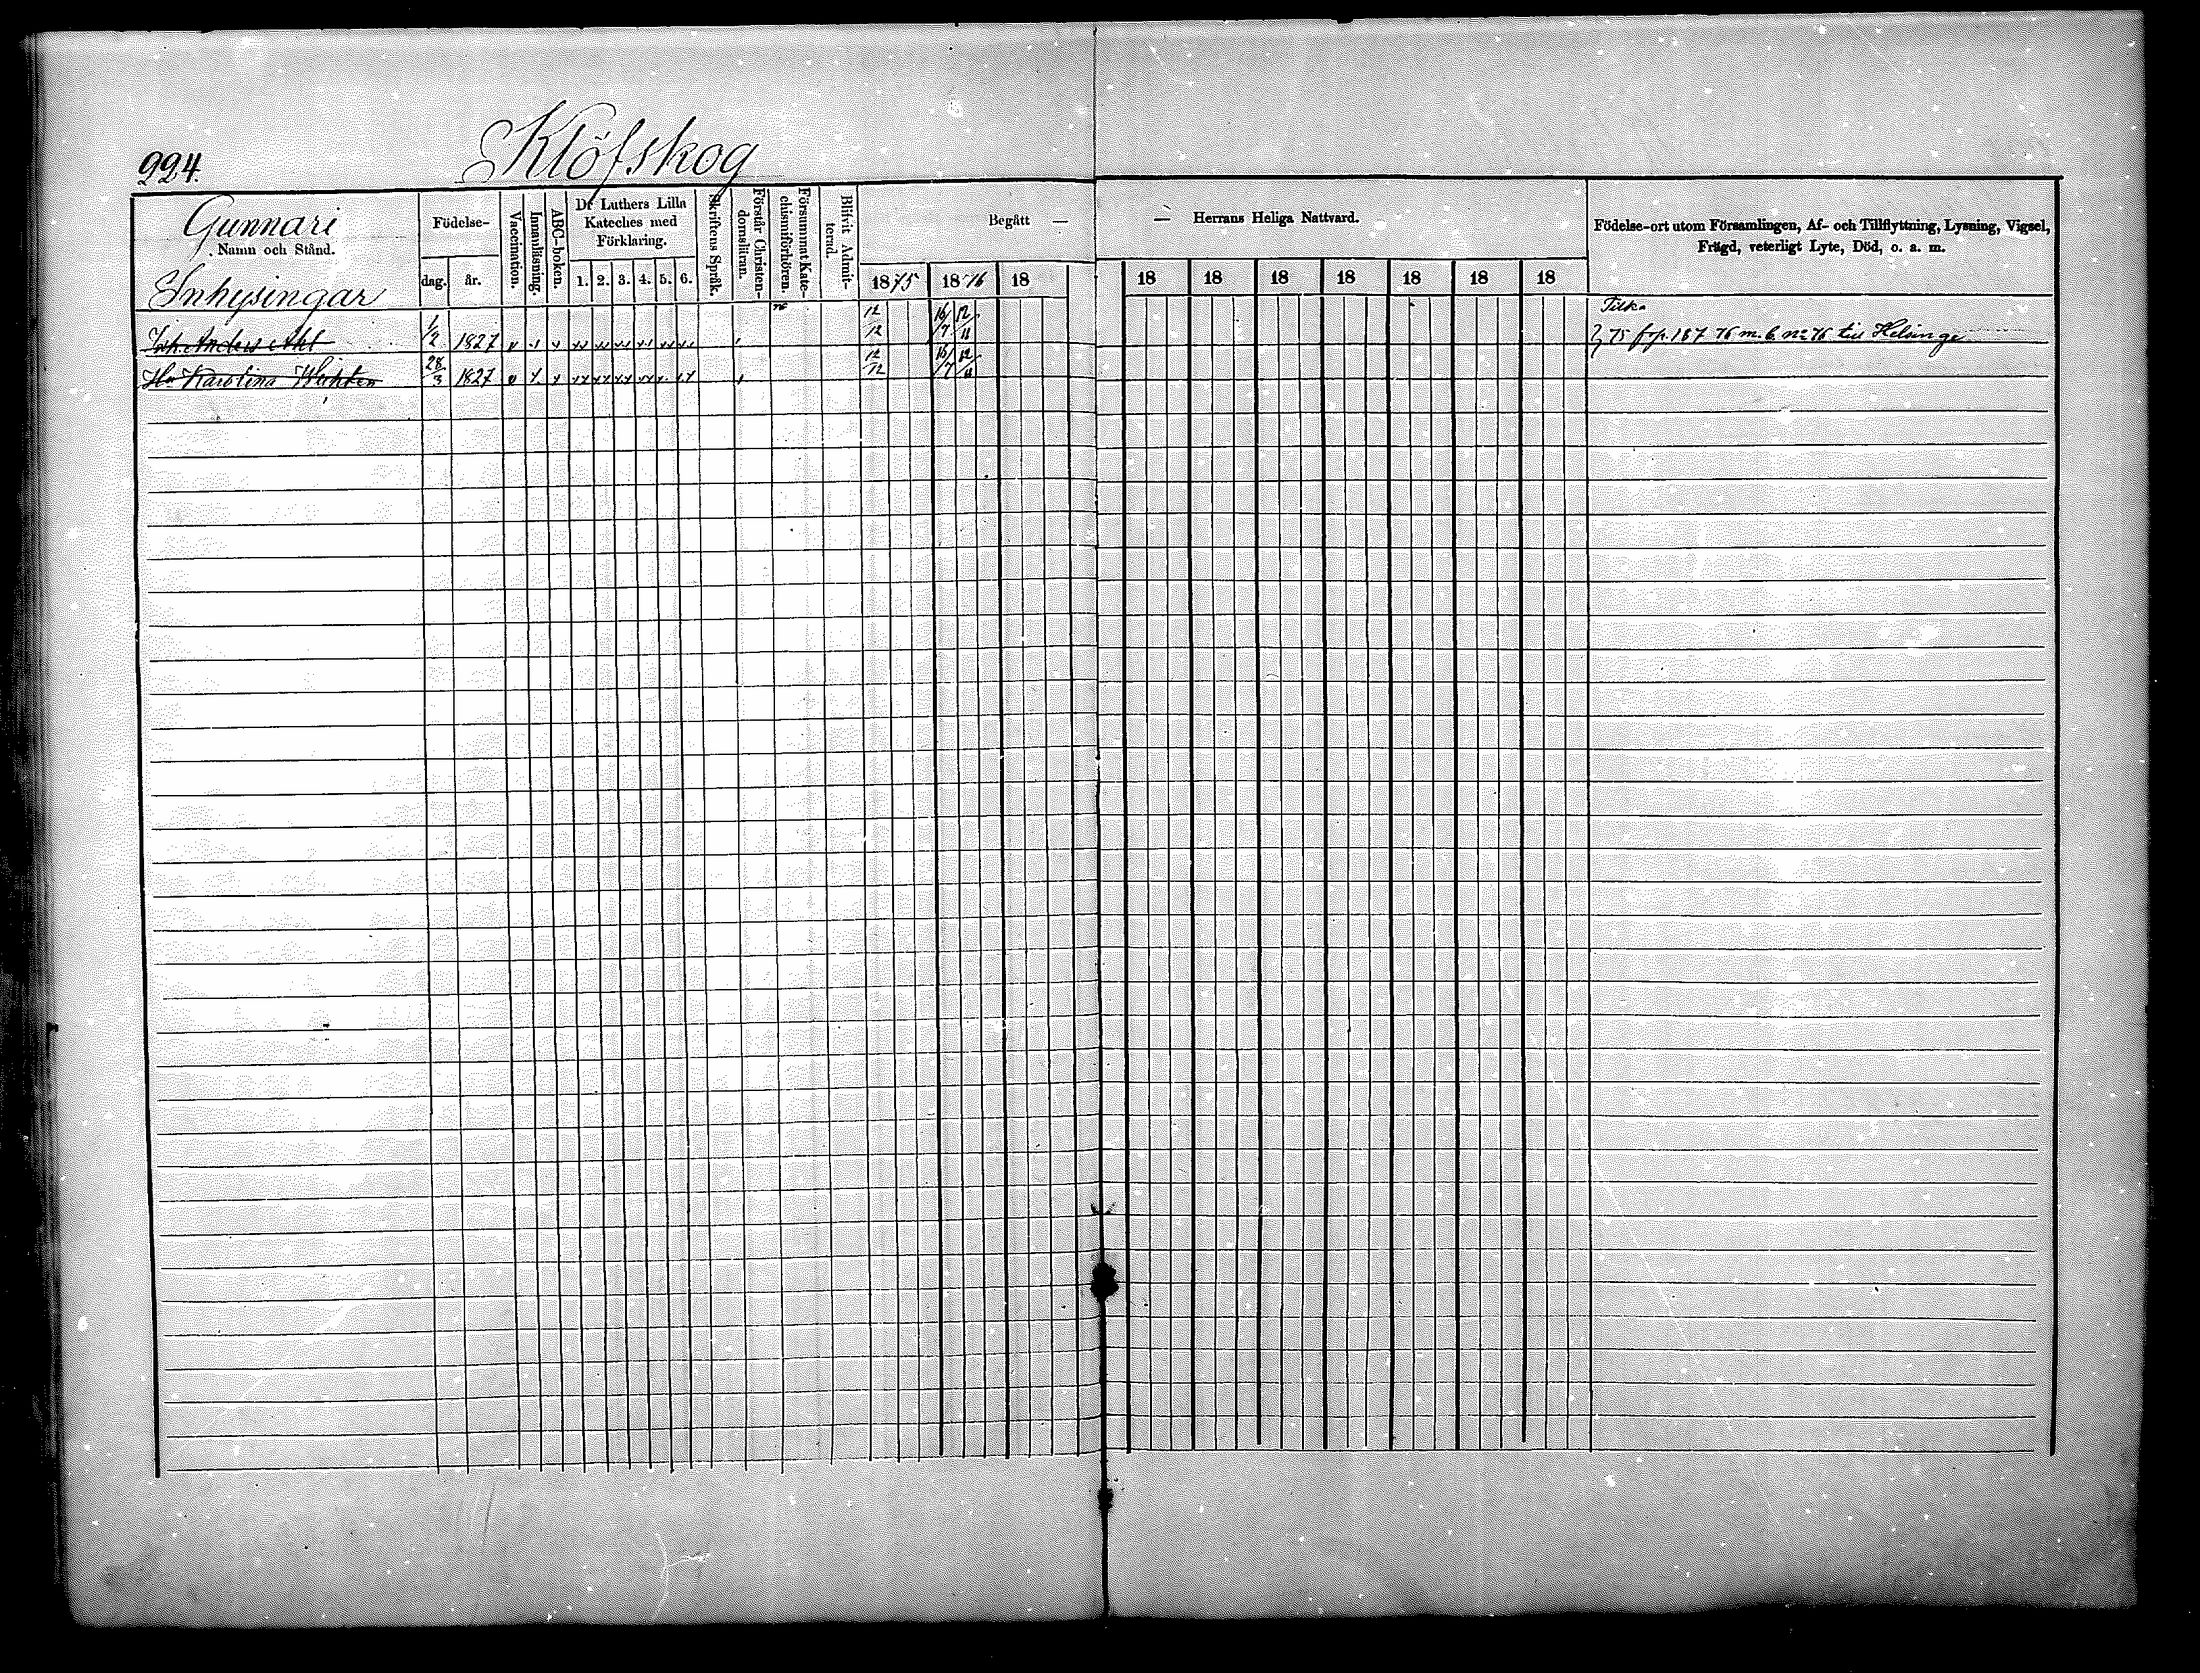 224.
Klöfskog
Gunnari
Namn och Stånd.
Inhysingar
Födelse-
dag. år.
Vaccination.
Innanläsning.
ABC-boken.
Dr Luthers Lilla
Kateches med
Förklaring.
1. 2. 3. 4. 5. 6.
Skriftens Språk.
Förstår Christen-
domsläran.
Försummat Kate-
chismiförhören.
Blifvit Admit-
terad.
Begått —
— Herrans Heliga Nattvard.
1875 1876 18 18 18 18 18 18 18 18
Födelse-ort utom Församlingen, Af- och Tillflyttning, Lysning, Vigsel,
Frägd, veterligt Lyte, Död, o. a. m.
Anders Ahl 1/2 1827 12/12 16/7 12/11
75 frp. 187 76 m. b. no 76 till Helsinge
Hu Karolina 28/3 1827 12/12 16/7 12/11